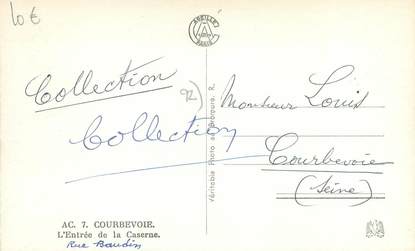 10 €
ABEILLE
PARIS
Collection
92
Collection
Monsieur Louis
Courbevoie
(Seine)
Véritable Photo au Bromure. R.
AC. 7. COURBEVOIE.
L'Entrée de la Caserne.
Rue Baudin